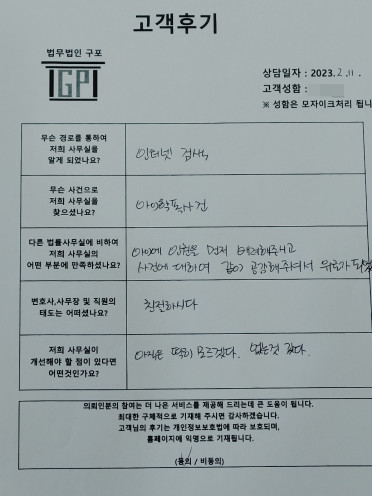 고객후기
법무법인 구포
IGPI
상담일자 : 2023. 2. 11.
고객성함 :
※ 성함은 모자이크처리 됩니
무슨 경로를 통하여
저희 사무실을
알게 되었나요?
인터넷 검색
무슨 사건으로
저희 사무실을
찾으셨나요?
아이학폭사건
다른 법률사무실에 비하여
저희 사무실의
어떤 부분에 만족하셨나요?
아이에 인권을 먼저 배려해주시고
사건에 대하여 같이 공감해주셔서 위로가
변호사,사무장 및 직원의
태도는 어떠셨나요?
친절하시다
저희 사무실이
개선해야 할 점이 있다면
어떤것인가요?
아직은 딱히 모르겠다. 없는것 같다.
의뢰인분의 참여는 더 나은 서비스를 제공해 드리는데 큰 도움이 됩니다.
최대한 구체적으로 기재해 주시면 감사하겠습니다.
고객님의 후기는 개인정보보호법에 따라 보호되며,
홈페이지에 익명으로 기재됩니다.
(동의 / 비동의)